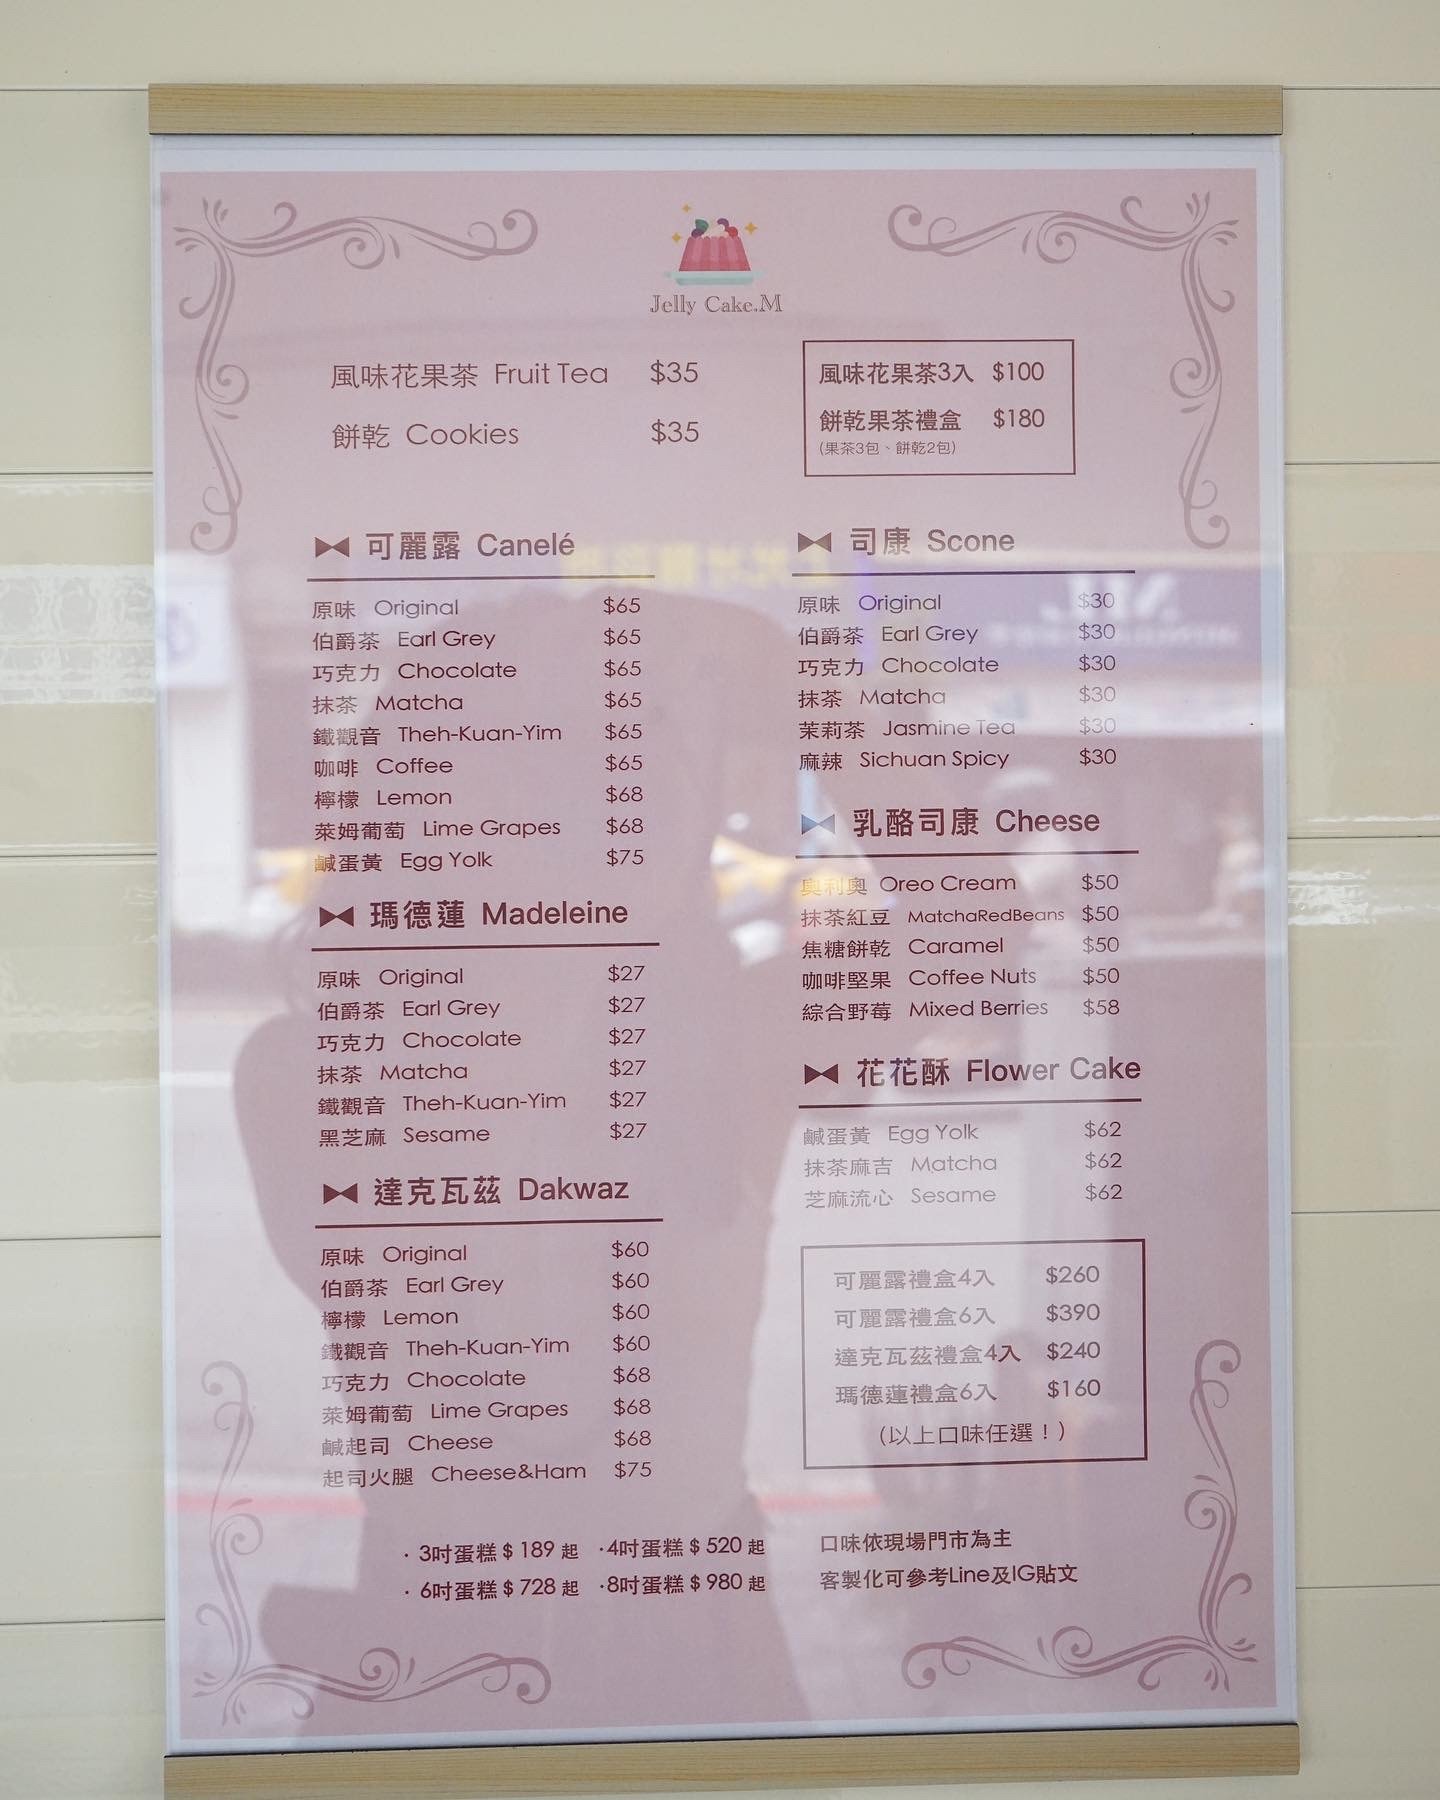 Jelly Cake.M
風味花果茶 Fruit Tea $35
餅乾 Cookies $35
風味花果茶3入 $100
餅乾果茶禮盒 $180
(果茶3包、餅乾2包)
可麗露 Canelé
原味 Original $65
伯爵茶 Earl Grey $65
巧克力 Chocolate $65
抹茶 Matcha $65
鐵觀音 Theh-Kuan-Yim $65
咖啡 Coffee $65
檸檬 Lemon $68
萊姆葡萄 Lime Grapes $68
鹹蛋黃 Egg Yolk $75
瑪德蓮 Madeleine
原味 Original $27
伯爵茶 Earl Grey $27
巧克力 Chocolate $27
抹茶 Matcha $27
鐵觀音 Theh-Kuan-Yim $27
黑芝麻 Sesame $27
達克瓦茲 Dakwaz
原味 Original $60
伯爵茶 Earl Grey $60
檸檬 Lemon $60
鐵觀音 Theh-Kuan-Yim $60
巧克力 Chocolate $68
萊姆葡萄 Lime Grapes $68
鹹起司 Cheese $68
起司火腿 Cheese&Ham $75
司康 Scone
原味 Original $30
伯爵茶 Earl Grey $30
巧克力 Chocolate $30
抹茶 Matcha $30
茉莉茶 Jasmine Tea $30
麻辣 Sichuan Spicy $30
乳酪司康 Cheese
奧利奧 Oreo Cream $50
抹茶紅豆 MatchaRedBeans $50
焦糖餅乾 Caramel $50
咖啡堅果 Coffee Nuts $50
綜合野莓 Mixed Berries $58
花花酥 Flower Cake
鹹蛋黃 Egg Yolk $62
抹茶麻吉 Matcha $62
芝麻流心 Sesame $62
可麗露禮盒4入 $260
可麗露禮盒6入 $390
達克瓦茲禮盒4入 $240
瑪德蓮禮盒6入 $160
(以上口味任選！)
· 3吋蛋糕 $ 189 起 ·4吋蛋糕 $ 520 起
· 6吋蛋糕 $ 728 起 ·8吋蛋糕 $ 980 起
口味依現場門市為主
客製化可參考Line及IG貼文